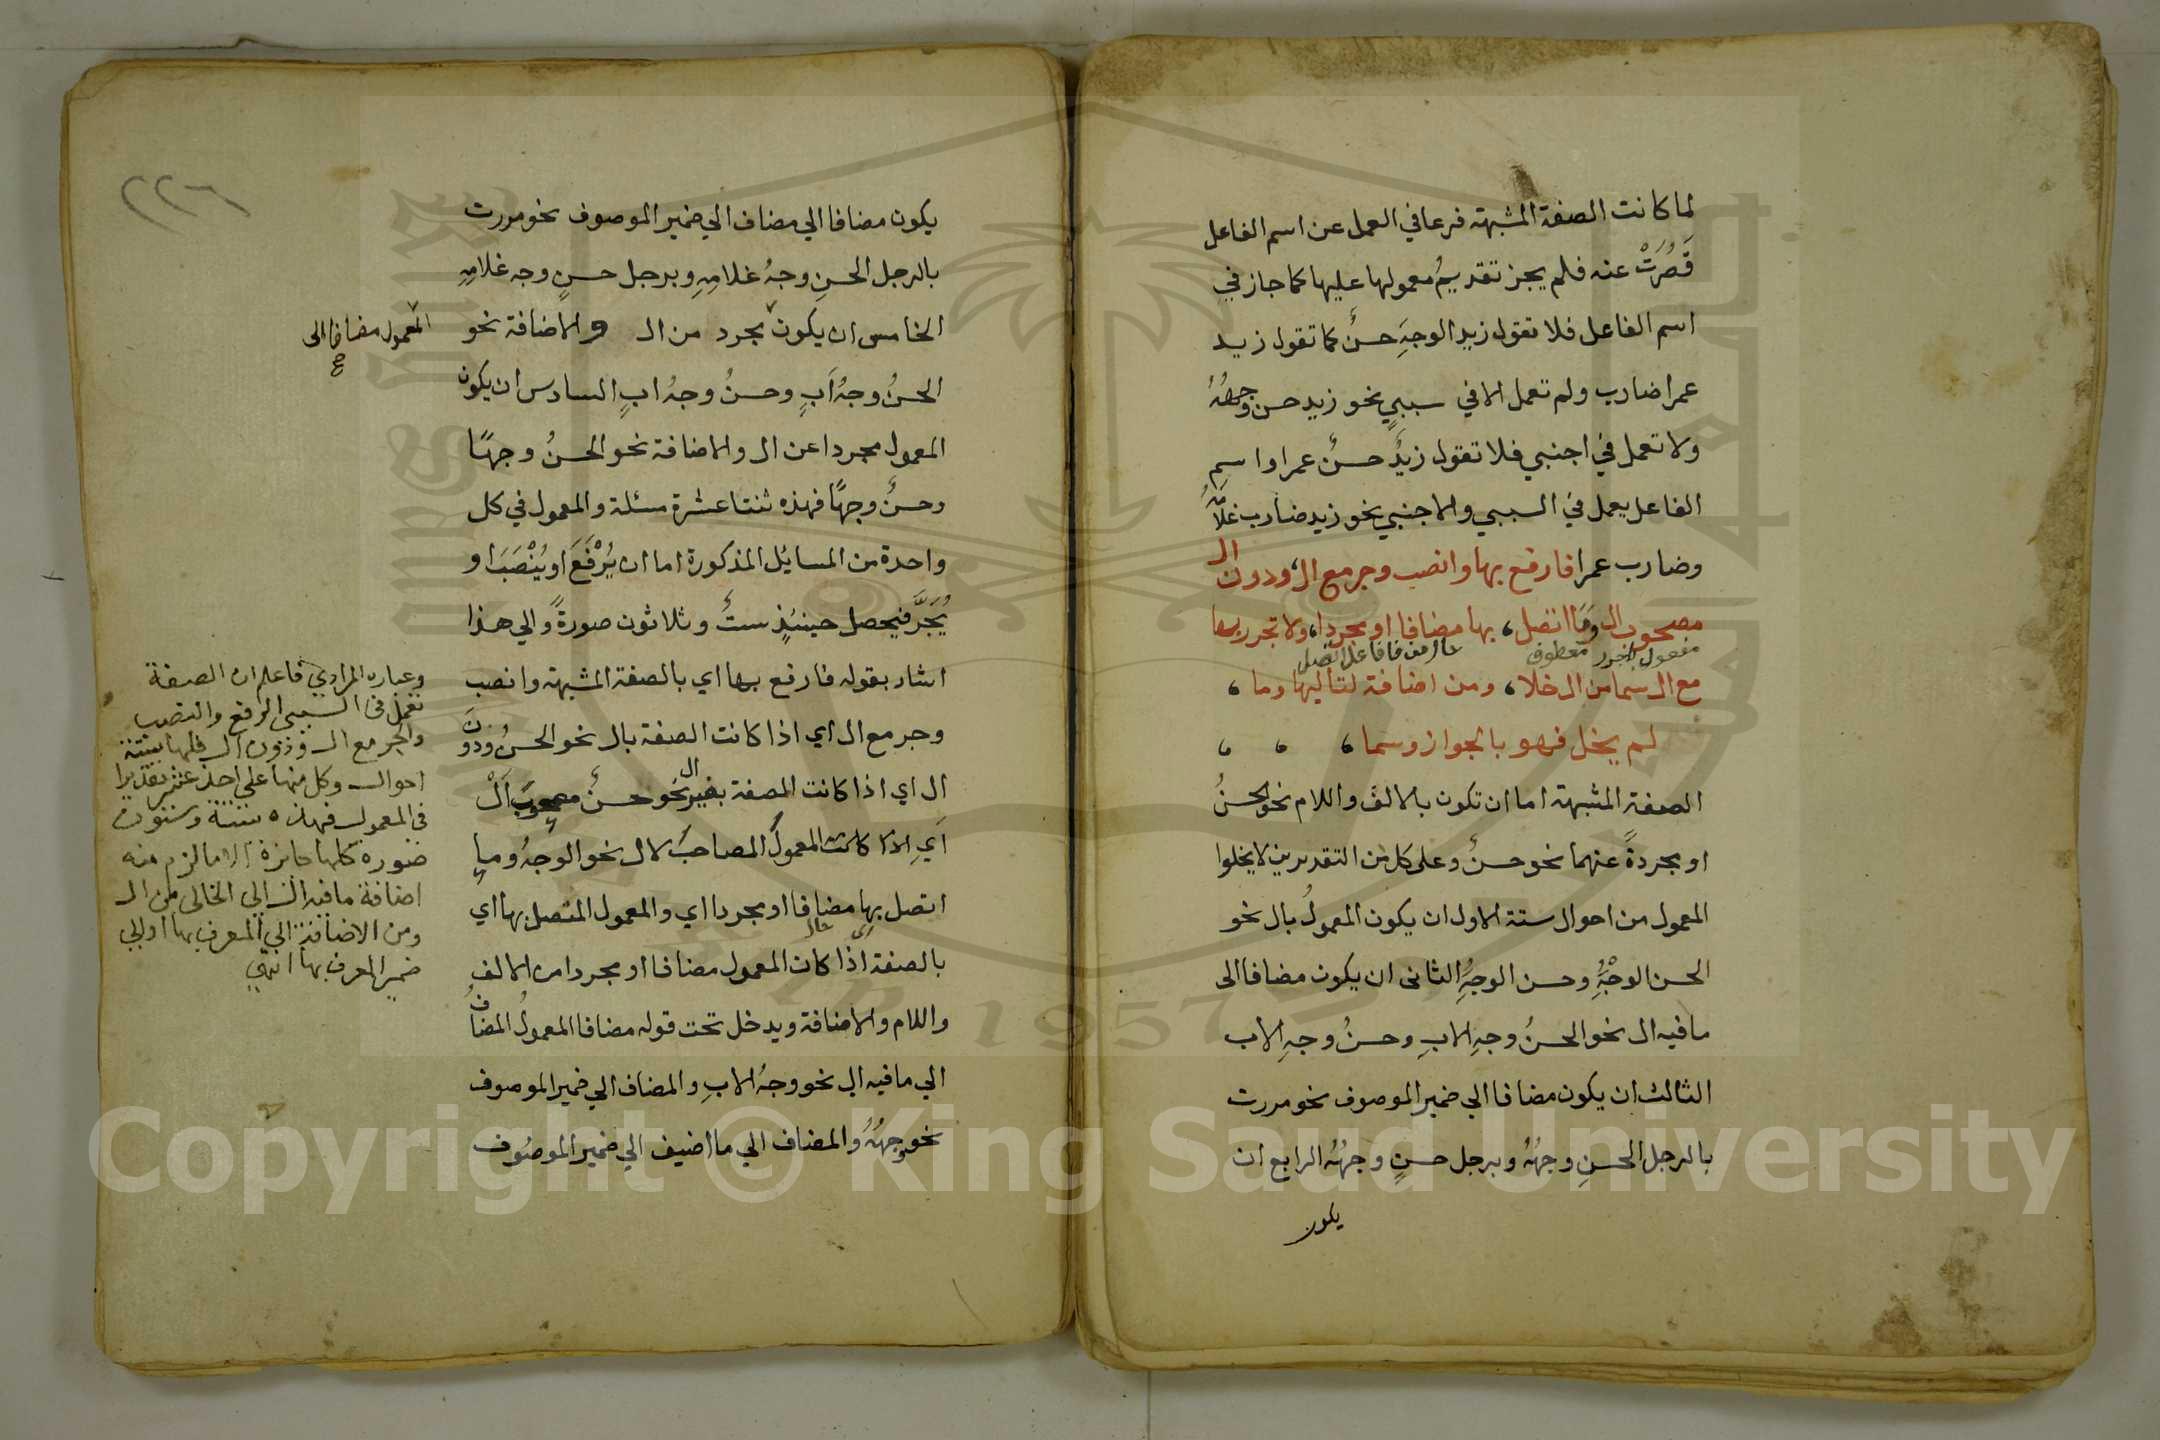 لما كانت الصفة المشبهة فرعا في العمل عن اسم الفاعل
قَصُرَتْ عنه فلم يجز تقديمُ معمولها عليها كما جاز في
اسم الفاعل فلا تقول زيد الوجهَ حسنٌ كما تقول زيد
عمرا ضارب ولم تعمل الا في سببيٍ نحو زيد حسن وجهُهُ
ولا تعمل في اجنبي فلا تقول زيدٌ حسنٌ عمرا واسم
الفاعل يعمل في السببي والاجنبي نحو زيد ضارب غلامَهُ
وضارب عمرا فارفع بها وانصب وجر مع ال، ودون ال
مصحوب ال وَمَا اتصل، بها مضافا او مجردا، ولا تجرر بها
مفعول تجرر معطوف حال من فاعل اتصل
مع ال سُما من ال خلا، ومن اضافة لتاليها وما،
لم يخل فهو بالجواز وسما، ، ،
الصفة المشبهة اما ان تكون بالالف واللام نحو الحسنُ
او مجردةً عنهما نحو حسنٌ وعلى كل من التقديرين لا يخلوا
المعمول من احوال ستة الاول ان يكون المعمولُ بال نحو
الحسن الوجْهُ وحسن الوجهُ الثانى ان يكون مضافا الى
ما فيه ال نحو الحسنُ وجهِ الابِ وحسنُ وجهِ الاب
الثالث ان يكون مضافا الي ضمير الموصوف نحو مررت
بالرجل الحسنِ وجهُهُ وبرجل حسنٍ وجهُهُ الرابع ان
يكون
٢٢٦
يكون مضافا الي مضاف الي ضمير الموصوف نحو مررت
بالرجل الحسنِ وجهُ غلامِهِ وبرجل حسنٍ وجه غلامِهِ
الخامس ان يكون مجرد من ال والاضافة نحو
المعمول مضافا الى
الحسنُ وجهُ اَبٍ وحسنُ وجهُ ابٍ السادس ان يكون
المعمول مجردا عن ال والاضافة نحو الحسنُ وجهًا
وحسنٌ وجهًا فهذه ثنتا عشرة مسئلة والمعمول في كل
واحدة من المسايل المذكورة اما ان يُرْفَعَ او يُنْصَبَ او
يُجَرَّ فيحصل حينئذٍ ستٌ وثلاثون صورةً والي هذا
اشار بقوله فارفع بها اي بالصفة المشبهة وانصب
وجر مع ال اي اذا كانت الصفة بال نحو الحسنُ ودونَ
ال اي اذا كانت الصفة بغير ال نحو حسنٌ مصحوبَ اَلْ
اَي اذا كانت المعمولُ المصاحبَ لال نحو الوجهُ وما
اتصل بها مضافا او مجردا اي والمعمول المتصل بها اي
بالصفة اذا كان المعمول مضافا او مجردا من الالف
واللام والاضافة ويدخل تحت قوله مضافا المعمولُ المضافُ
الي ما فيه ال نحو وجهُ الابِ والمضاف الي ضمير الموصوف
نحو وجهُهُ والمضاف الي ما اضيف الي ضمير الموصُوف
وعبارة المرادي فاعلم ان الصفة
تعمل في السببى الرفع والنصب
والجر مع ال ودون ال فلها ستة
احوال وكل منها على احد عشر تقديرا
فى المعمول فهذه ستة وستون
صورة كلها جائزة الا ما لزم منه
اضافة ما فيه ال الى الخالى من ال
ومن الاضافة الي المعرف بها او الى
ضمير المعرف بها انتهي
1957
Copyright © King Saud University